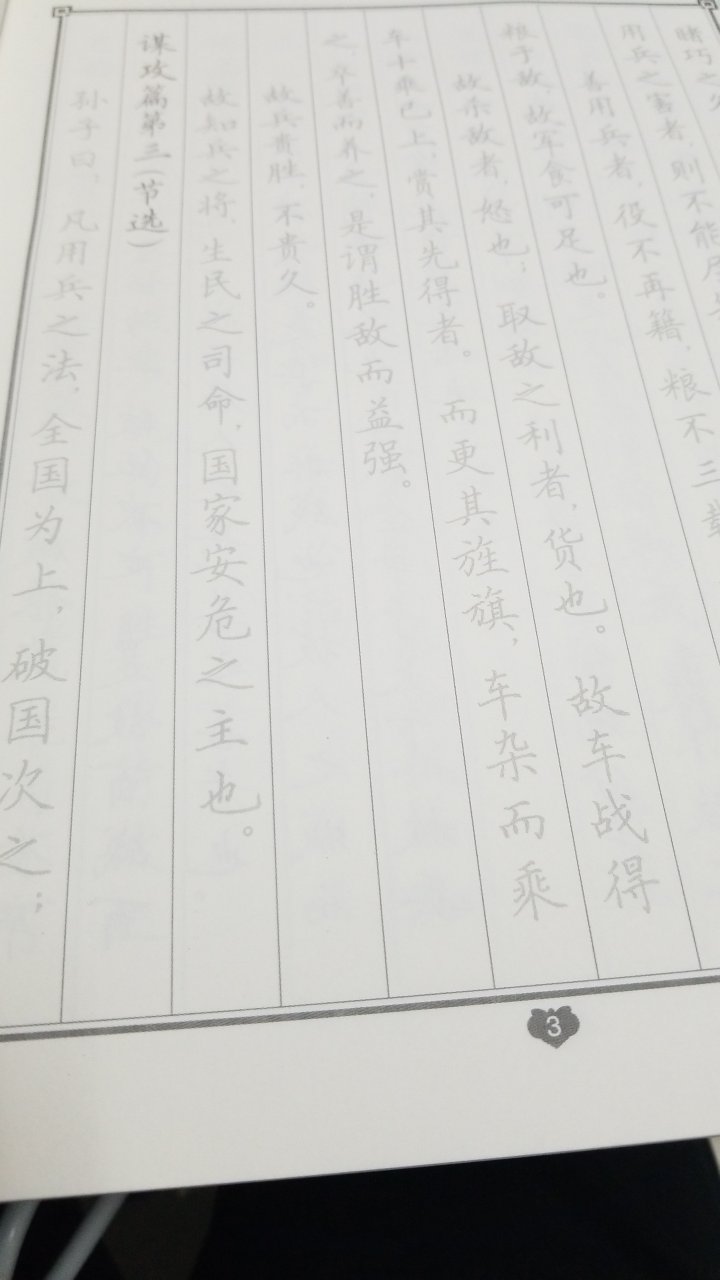 睹巧之久
用兵之害者，则不能尽
善用兵者，役不再籍，粮不三载
粮于敌，故军食可足也。
故杀敌者，怒也；取敌之利者，货也。故车战得
车十乘已上，赏其先得者。而更其旌旗，车杂而乘
之，卒善而养之，是谓胜敌而益强。
故兵贵胜，不贵久。
故知兵之将，生民之司命，国家安危之主也。
谋攻篇第三（节选）
孙子曰：凡用兵之法，全国为上，破国次之；
3